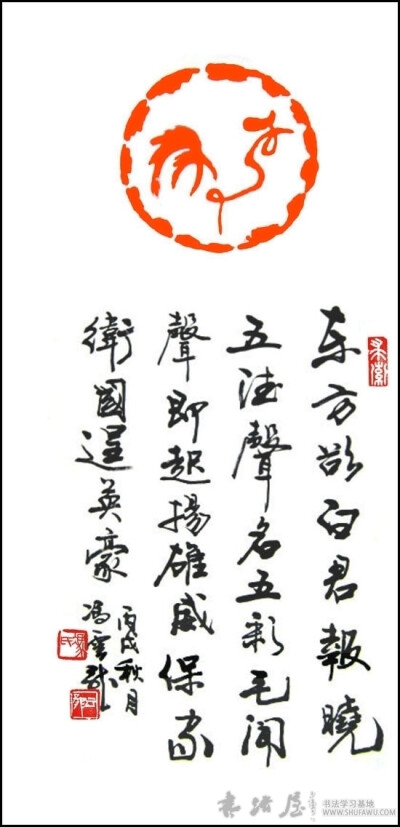 东方欲白君報曉
五德聲名五彩毛闻
聲即起揚雄威保家
衛國逞英豪
丙戌秋月
馮雲龍
書法屋
书法学习基地
WWW.SHUFAWU.COM